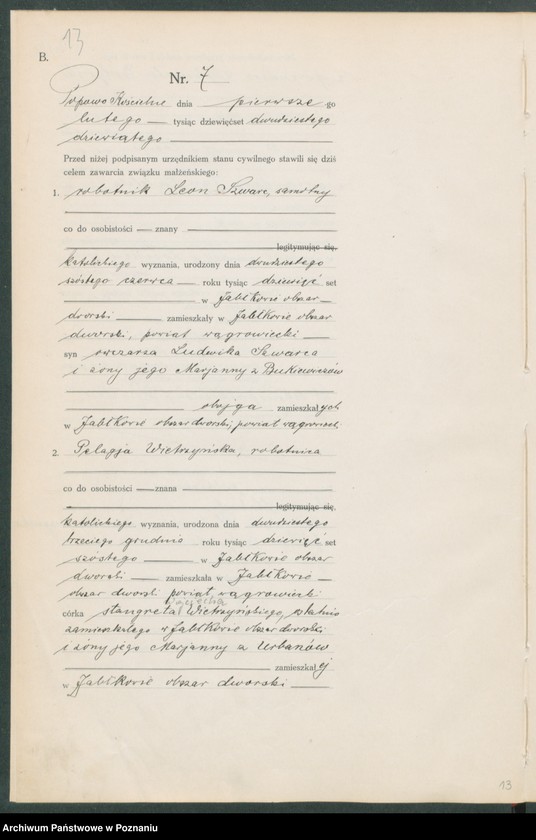 13
B.
Nr. 7
Popowo Kościelne dnia pierwszego
lutego tysiąc dziewięćset dwudziestego
dziewiątego
Przed niżej podpisanym urzędnikiem stanu cywilnego stawili się dziś
celem zawarcia związku małżeńskiego:
1. robotnik Leon Szwarc, samotny
co do osobistości znany
legitymując się,
katolickiego wyznania, urodzony dnia dwudziestego
szóstego czerwca roku tysiąc dziewięć set
w Jabłkowie obszar
dworski zamieszkały w Jabłkowie obszar
dworski, powiat wągrowiecki
syn owczarza Ludwika Szwarca
i żony jego Marjanny z Bukiewiczów
obojga zamieszkałych
w Jabłkowie obszar dworski, powiat wągrowiecki
2. Pelagja Wietrzyńska, robotnica
co do osobistości znana
legitymując się,
katolickiego wyznania, urodzona dnia dwudziestego
trzeciego grudnia roku tysiąc dziewięć set
szóstego w Jabłkowie obszar
dworski zamieszkała w Jabłkowie
obszar dworski powiat wągrowiecki
córka stangreta Wietrzyńskiego, ostatnio
zamieszkałego w Jabłkowie obszar dworski
i żony jego Marjanny z Urbanów
zamieszkałej
w Jabłkowie obszar dworski
13
Archiwum Państwowe w Poznaniu